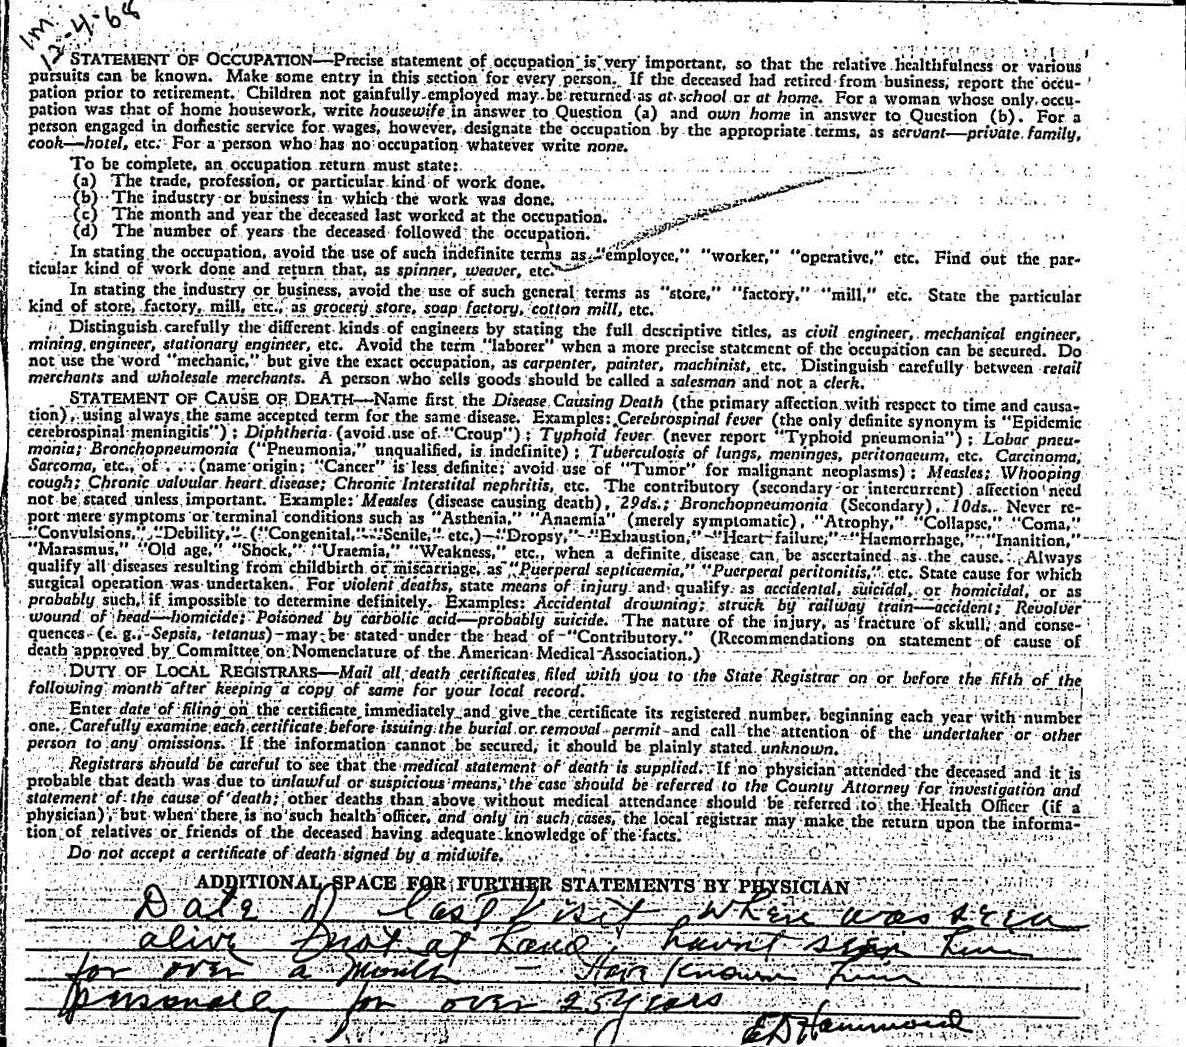 1m
12-4-68
STATEMENT OF OCCUPATION—Precise statement of occupation is very important, so that the relative healthfulness or various
pursuits can be known. Make some entry in this section for every person. If the deceased had retired from business, report the occu-
pation prior to retirement. Children not gainfully employed may be returned as at school or at home. For a woman whose only occu-
pation was that of home housework, write housewife in answer to Question (a) and own home in answer to Question (b). For a
person engaged in domestic service for wages, however, designate the occupation by the appropriate terms, as servant—private family,
cook—hotel, etc. For a person who has no occupation whatever write none.
To be complete, an occupation return must state:
(a) The trade, profession, or particular kind of work done.
(b) The industry or business in which the work was done.
(c) The month and year the deceased last worked at the occupation.
(d) The number of years the deceased followed the occupation.
In stating the occupation, avoid the use of such indefinite terms as "employee," "worker," "operative," etc. Find out the par-
ticular kind of work done and return that, as spinner, weaver, etc.
In stating the industry or business, avoid the use of such general terms as "store," "factory," "mill," etc. State the particular
kind of store, factory, mill, etc., as grocery store, soap factory, cotton mill, etc.
Distinguish carefully the different kinds of engineers by stating the full descriptive titles, as civil engineer, mechanical engineer,
mining engineer, stationary engineer, etc. Avoid the term "laborer" when a more precise statement of the occupation can be secured. Do
not use the word "mechanic," but give the exact occupation, as carpenter, painter, machinist, etc. Distinguish carefully between retail
merchants and wholesale merchants. A person who sells goods should be called a salesman and not a clerk.
STATEMENT OF CAUSE OF DEATH—Name first the Disease Causing Death (the primary affection with respect to time and causa-
tion), using always the same accepted term for the same disease. Examples: Cerebrospinal fever (the only definite synonym is "Epidemic
cerebrospinal meningitis"); Diphtheria (avoid use of "Croup"); Typhoid fever (never report "Typhoid pneumonia"); Lobar pneu-
monia; Bronchopneumonia ("Pneumonia," unqualified, is indefinite); Tuberculosis of lungs, meninges, peritonaeum, etc. Carcinoma,
Sarcoma, etc., of . . . (name origin; "Cancer" is less definite; avoid use of "Tumor" for malignant neoplasms); Measles; Whooping
cough; Chronic valvular heart disease; Chronic Interstital nephritis, etc. The contributory (secondary or intercurrent) affection need
not be stated unless important. Example: Measles (disease causing death), 29ds.; Bronchopneumonia (Secondary), 10ds. Never re-
port mere symptoms or terminal conditions such as "Asthenia," "Anaemia" (merely symptomatic), "Atrophy," "Collapse," "Coma,"
"Convulsions," "Debility," ("Congenital," "Senile," etc.) "Dropsy," "Exhaustion," "Heart failure," "Haemorrhage," "Inanition,"
"Marasmus," "Old age," "Shock," "Uraemia," "Weakness," etc., when a definite disease can be ascertained as the cause. Always
qualify all diseases resulting from childbirth or miscarriage, as "Puerperal septicaemia," "Puerperal peritonitis," etc. State cause for which
surgical operation was undertaken. For violent deaths, state means of injury and qualify as accidental, suicidal, or homicidal, or as
probably such, if impossible to determine definitely. Examples: Accidental drowning; struck by railway train—accident; Revolver
wound of head—homicide; Poisoned by carbolic acid—probably suicide. The nature of the injury, as fracture of skull, and conse-
quences (e. g., Sepsis, tetanus) may be stated under the head of "Contributory." (Recommendations on statement of cause of
death approved by Committee on Nomenclature of the American Medical Association.)
DUTY OF LOCAL REGISTRARS—Mail all death certificates filed with you to the State Registrar on or before the fifth of the
following month after keeping a copy of same for your local record.
Enter date of filing on the certificate immediately and give the certificate its registered number, beginning each year with number
one. Carefully examine each certificate before issuing the burial or removal permit and call the attention of the undertaker or other
person to any omissions. If the information cannot be secured, it should be plainly stated unknown.
Registrars should be careful to see that the medical statement of death is supplied. If no physician attended the deceased and it is
probable that death was due to unlawful or suspicious means, the case should be referred to the County Attorney for investigation and
statement of the cause of death; other deaths than above without medical attendance should be referred to the Health Officer (if a
physician), but when there is no such health officer, and only in such cases, the local registrar may make the return upon the informa-
tion of relatives or friends of the deceased having adequate knowledge of the facts.
Do not accept a certificate of death signed by a midwife.
ADDITIONAL SPACE FOR FURTHER STATEMENTS BY PHYSICIAN
Date of last visit when was seen
alive not at hand, havnt seen him
for over a month — Have known him
personally for over 25 years
E D Hammond